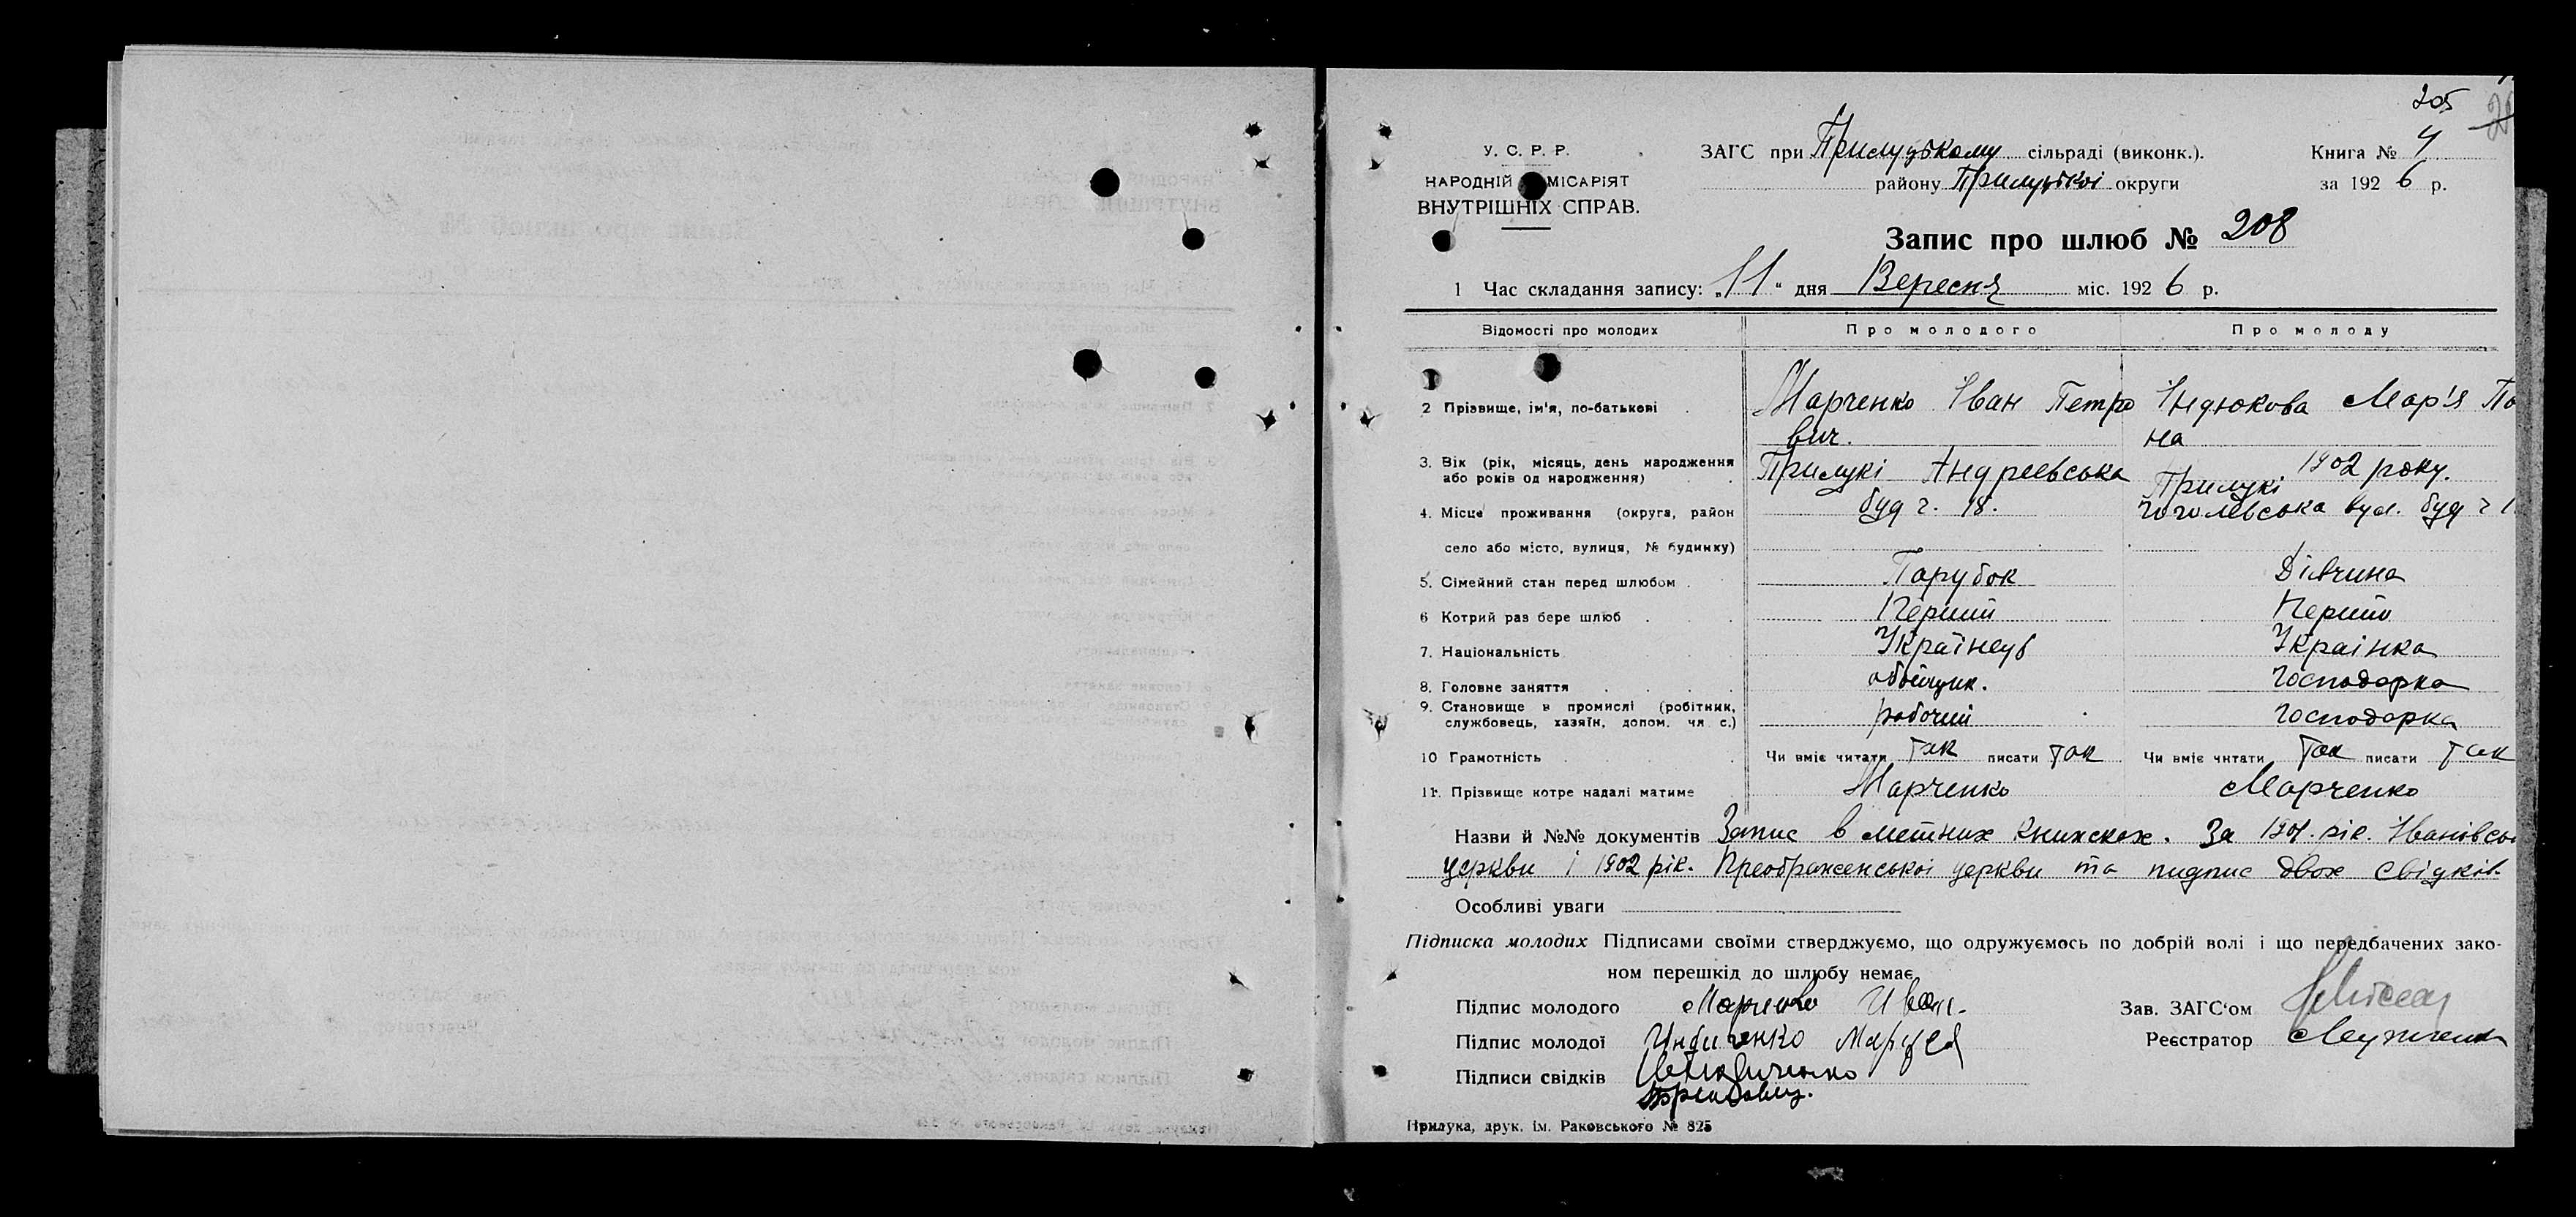 205
У. С. Р. Р.
НАРОДНІЙ КОМІСАРІЯТ
ВНУТРІШНІХ СПРАВ.
ЗАГС при Прилуцькому сільраді (виконк.).
району Прилуцької округи
Книга № 4
за 1926 р.
Запис про шлюб № 208
1 Час складання запису: „11“ дня Вересня міс. 1926 р.
Відомості про молодих Про молодого Про молоду
2 Прізвище, ім'я, по-батькові Марченко Іван Петро Індюкова Мар'я Па
вич. на
3. Вік (рік, місяць, день народження
або років од народження)
1902 року.
Прилукі Андреевська Прилукі
4. Місце проживання (округа, район буд ч. 18. Гоголевська вул. буд ч 1
село або місто, вулиця, № будинку)
5. Сімейний стан перед шлюбом Парубок Дівчина
6 Котрий раз бере шлюб Перший Перший
7. Національність Українець Украінка
8. Головне заняття обойщик. Господарка
9. Становище в промислі (робітник,
службовець, хазяїн, допом. чл. с.) рабочий Господарка
10 Грамотність Чи вміє читати так писати так Чи вміє читати так писати так
11. Прізвище котре надалі матиме Марченко Марченко
Назви й №№ документів Запис в метних книжках. За 1901. рік. Івановсько
церкви і 1902 рік. Преображенськоі церкви та пидпис двох свідків.
Особливі уваги
Підписка молодих Підписами своїми стверджуємо, що одружуємось по добрій волі і що передбачених зако-
ном перешкід до шлюбу немає
Підпис молодого Марченко Иван.
Зав. ЗАГС‘ом
Підпис молодої Индиченко Маруся
Реєстратор
Підписи свідків
Прилука, друк. ім. Раковського № 825